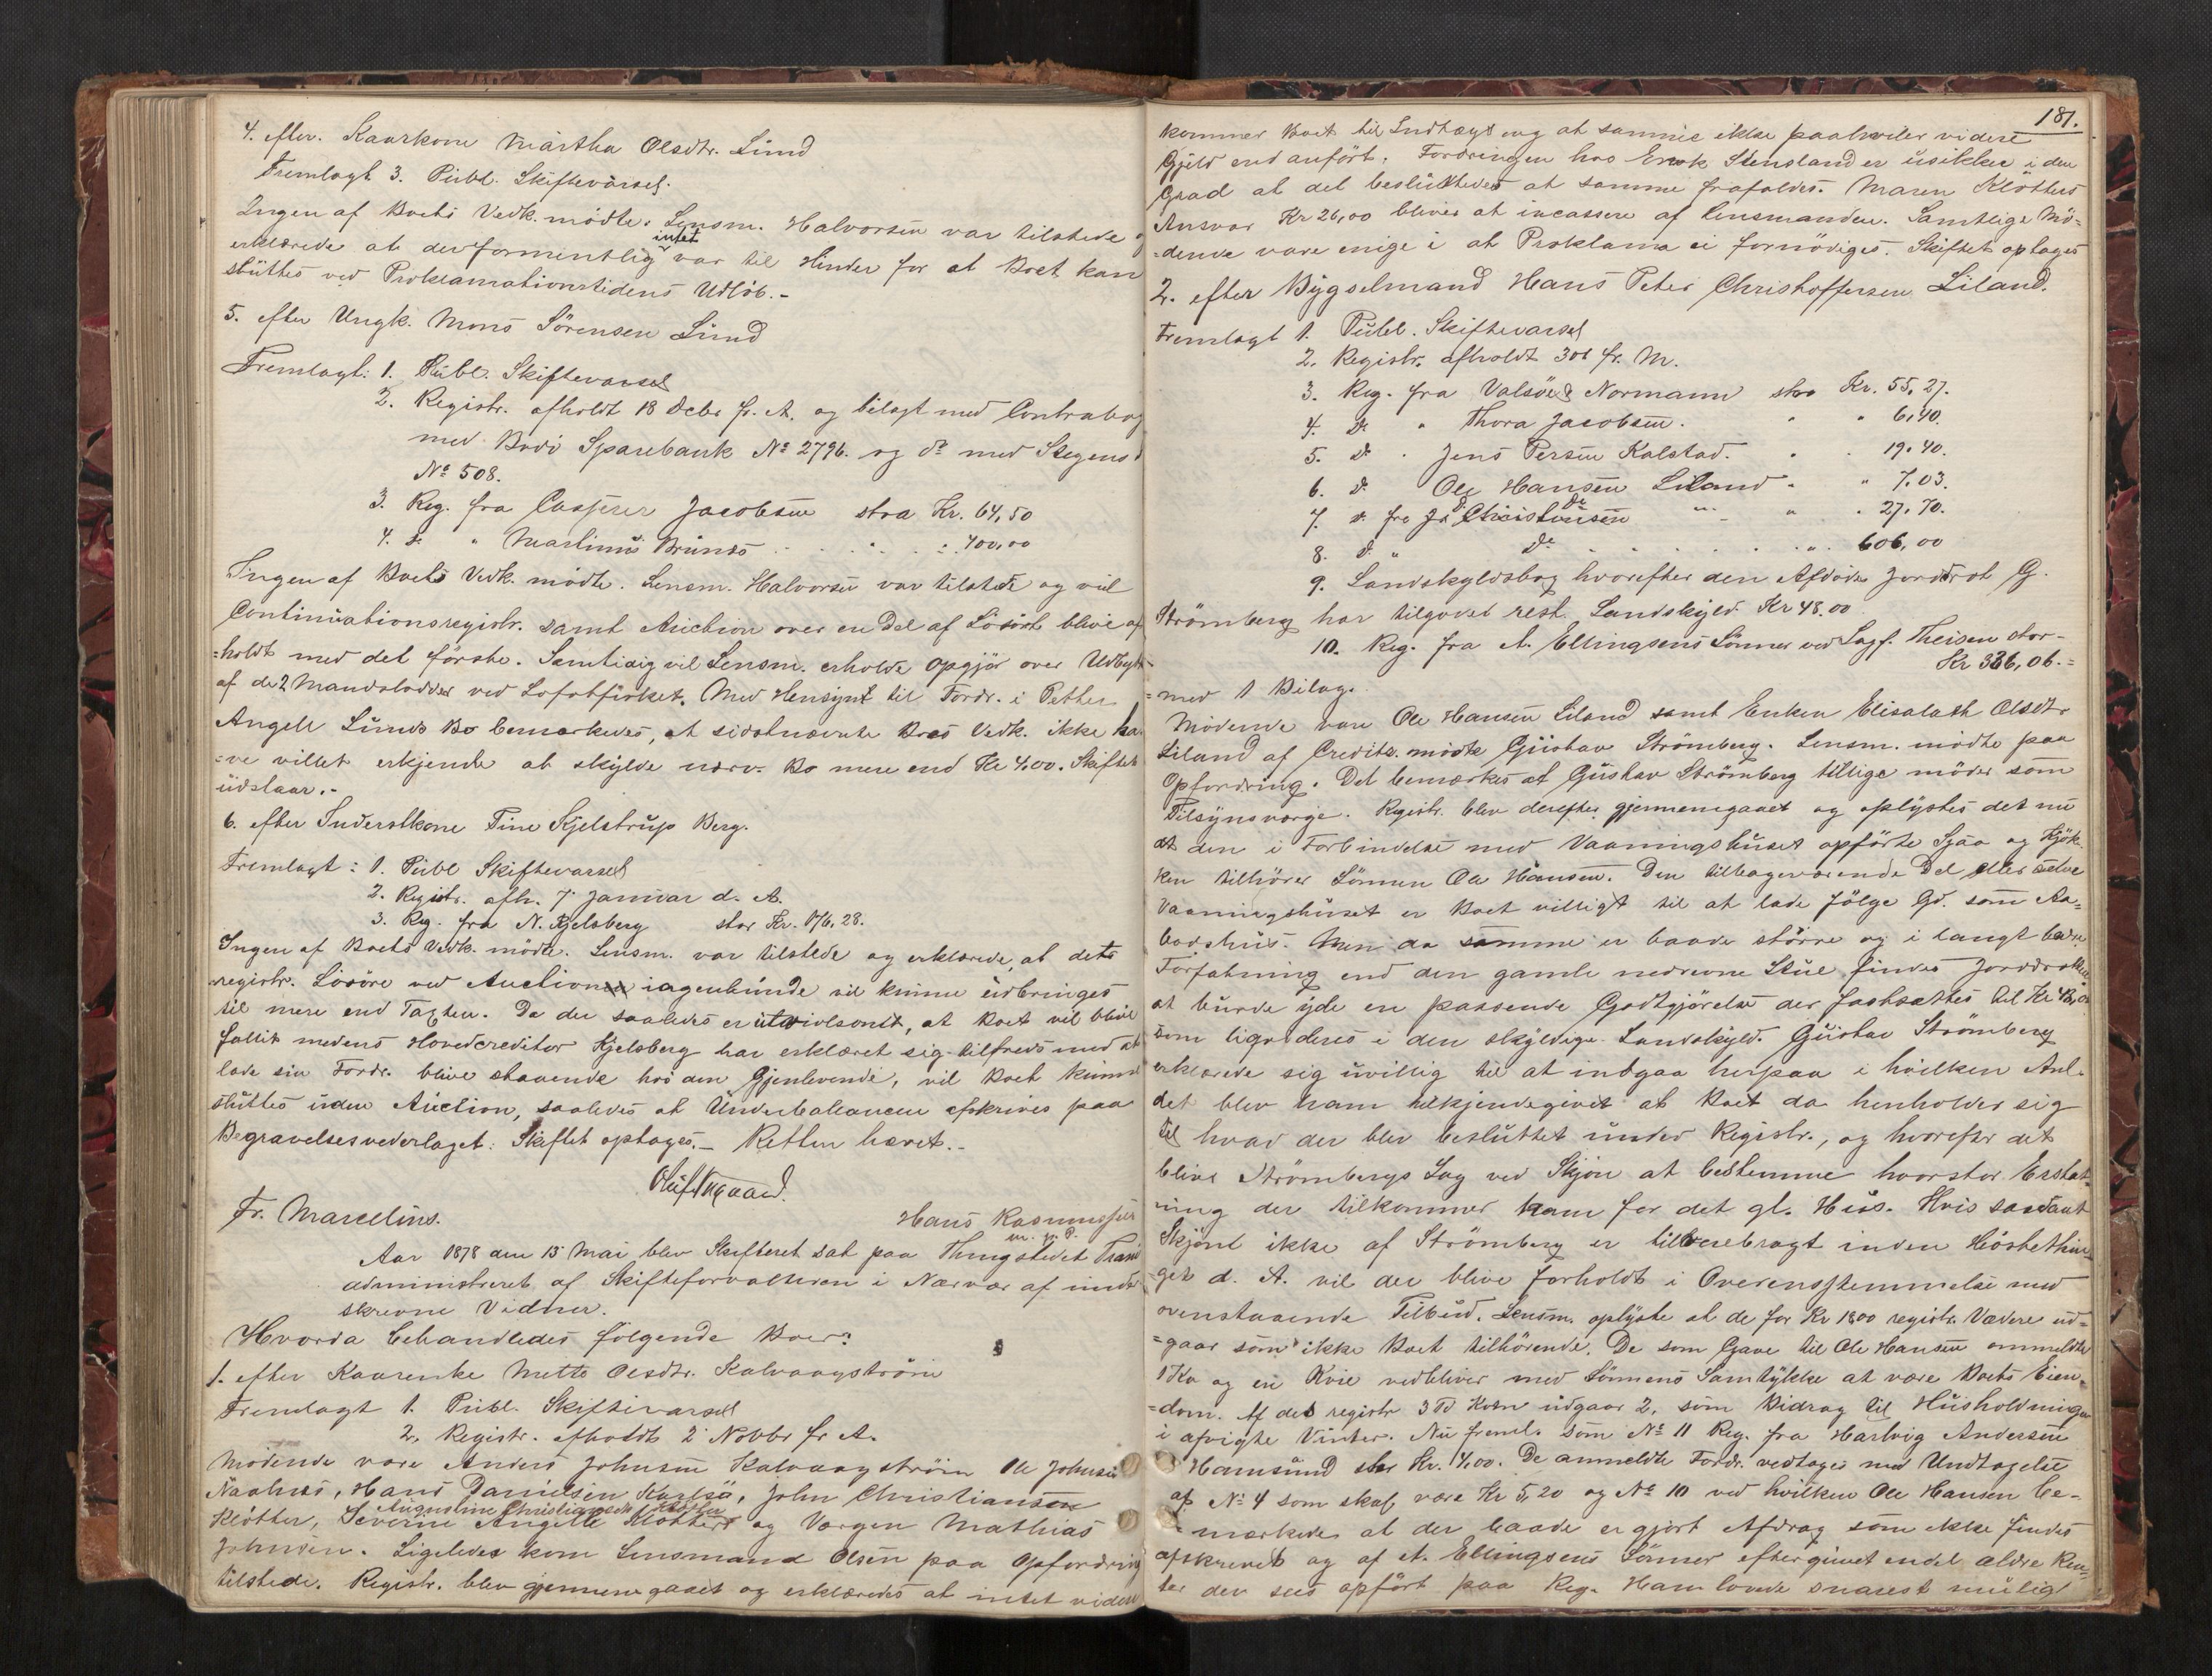 4. efter Kaarkone Martha Olsdtr. Lund
Fremlagt 3. Publ. Skiftevarsel.
Ingen af Boets Vedk. mödte. Lensm. Halvorsen var tilstede
erklærede at der formentlig intet var til Hinder for at Boet kan
sluttes ved Proklamationstidens Udlöb.-
5. efter Ungk. Mons Sörensen Lund
Fremlagt: 1. Publ. Skiftevarsel
2. Registr. afholdt 18 Decbr f. A. og bilagt med Contrabog
med Bodö Sparebank No 2796. og do med Stegens
No 508.
3. Reg. fra Casper Jacobsen stor Kr. 64,50
4. do " Martinus Bruns 400,00
Ingen af Boets Vedk. mödte. Lensm. Halvorsen var tilstede og vil
Continuationsregistr. samt Auction over en Del af Lösöret blive af
=holdt med det förste. Samtidig vil Lensm. erholde Opgjör over Udbytt
af de 2 Mandslodder ved Lofotfisket. Med Hensyn til Fordr. i Petter
Angell Lunds Bo bemærkedes, at sidstnævnte Boes Vedk. ikke ha-
=ve villet erkjende at skylde nærv. Bo mere end Kr 4,00. Skiftet
udstaar.-
6. efter Inderstkone Tine Kjelstrup Berg.
Fremlagt: 1. Publ Skiftevarsel
2. Registr. afh. 7 Januar d. A.
3. Reg. fra N. Kjelsberg stor Kr. 176,28.
Ingen af Boets Vedk. mödte. Lensm. var tilstede og erklærede, at det
registr. Lösöre ved Auction ingenlunde vil kunne udbringes
til mere end Taxten. Da der saaledes er utvivlsomt, at Boet vil blive
fallit medens Hovedcreditor Kjelsberg har erklæret sig tilfreds med at
lade sin Fordr. blive staaende hos den Gjenlevende, vil Boet kunne
sluttes uden Auction, saaledes at Underballancen afskrives paa
Begravelsesvederlaget. Skiftet optages.- Retten hævet.-
Fr. Marcelius. Hans Rasmussen
m. p. P.
Aar 1878 den 15 Mai blev Skifteret sat paa Thingstedet Tran
administreret af Skifteforvalteren i Nærvær af under
skrevne Vidner.
Hvorda behandledes fölgende Boer:
1. efter Kaarenke Mette Olsdtr. Kalvaagström
Fremlagt 1. Publ. Skiftevarsel
2. Registr. afholdt 2 Novbr f. A.
Mödende vare Anders Johnsen Kalvaagström Ole Johnsen
Naahues, Hans Danielsen Karlsö, John Christiansen
Augustine Christiansdtr Klötter
Klötter, Severine Angelle Klötter og Værgen Mathias
Johnsen. Ligeledes kom Lensmand Olsen paa Opfordring
tilstede. Registr. blev gjennemgaaet og erklæredes at intet videre
181.
kommer Boet til Indtægt og at samme ikke paahviler videre
Gjeld end anfört. Fordringen hos Enok Stensland er usikker i den
Grad at det besluttedes at samme frafaldes. Maren Klötters
Ansvar Kr 26,00 bliver at incassere af Lensmanden. Samtlige Mö=
=dende vare enige i at Proklama ei fornödiges. Skiftet optages
2. efter Bygselmand Hans Peter Christoffersen Liland.
Fremlagt 1. Publ. Skiftevarsel
2. Registr. afholdt 30t fr. M.
3. Reg. fra Valsöe & Normann stor Kr. 55,27.
4. do " Thora Jacobsen. " " 6,40.
5. do " Jens Persen Kalstad. " " 19,40.
6. do Ole Hansen Liland " " 7,03.
7. do fra Jd Christensen do " " 27,70.
8. do " do " 606,00
9. Landskyldsbog hvorefter den Afdödes Jorddrot G.
Strömberg har tilgode rest. Landskyld Kr 48,00
10. Reg. fra A. Ellingsens Sönner ved Sagf. Theisen stor-
Kr 326,06.=
=med 1 Bilag.
Mödende vare Ole Hansen Liland samt Enken Elisabath Olsdtr
Liland af Credits. mödte Gustav Strömberg. Lensm. mödte paa
Opfordring. Det bemærkes at Gustav Strömberg tillige möder som
Tilsynsværge. Registr. blev derefter gjennemgaaet og oplystes det nu
at den i Forbindelse med Vaaningshuset opförte Sjaa og Kjök-
ken tilhörer Sönnen Ole Hansen. Den tilbageværende Del eller selve
Vaaningshuset er Boet villigt til at lade fölge Gd. som Aa=
bodshus. Men da samme er baade större og i langt bedre
Forfatning end den gamle nedrevne Stue findes Jorddrotten
at burde yde en passende Godtgjörelse der fastsættes til Kr 48,00
som liqvideres i den skyldige Landskyld. Gustav Strömberg
erklærede sig uvillig til at indgaa herpaa i hvilken Anl.
det blev ham tilkjendegivet at Boet da henholder sig
til hvad der blev besluttet under Registr., og hvorefter det
bliver Strömbergs Sag ved Skjön at bestemme hvor stor Erstat-
ning der tilkommer ham for det gl. Hus. Hvis saadant
Skjönt ikke af Strömberg er tilveiebragt inden Hösttethin-
get d. A. vil der blive forholdt i Overensstemmelse med
ovenstaaende Tilbud. Lensm. oplyste at de for Kr 18,00 registr. Vædere ud=
=gaar som ikke Boet tilhörende. De som Gave til Ole Hansen anmeldte
1 Ko og en Kvie vedbliver med Sönnens Samtykke at være Boets Eien=
=dom. Af det registr 3 Td Korn udgaar 2, som Bidrag til Husholdningen
i afvigte Vinter. Nu freml. som No 11 Reg. fra Hartvig Andersen
Hamsund stor Kr. 4,00. De anmeldte Fordr. vedtages med Undtagelse
af No 4 som skal være Kr 5,20 og No 10 ved hvilken Ole Hansen be-
=mærkede at der baade er gjort Afdrag som ikke findes
afskrevet og af A. Ellingsens Sönner eftergivet endel ældre Ren=
ter der sees opfört paa Reg. Han lovede snarest mulig